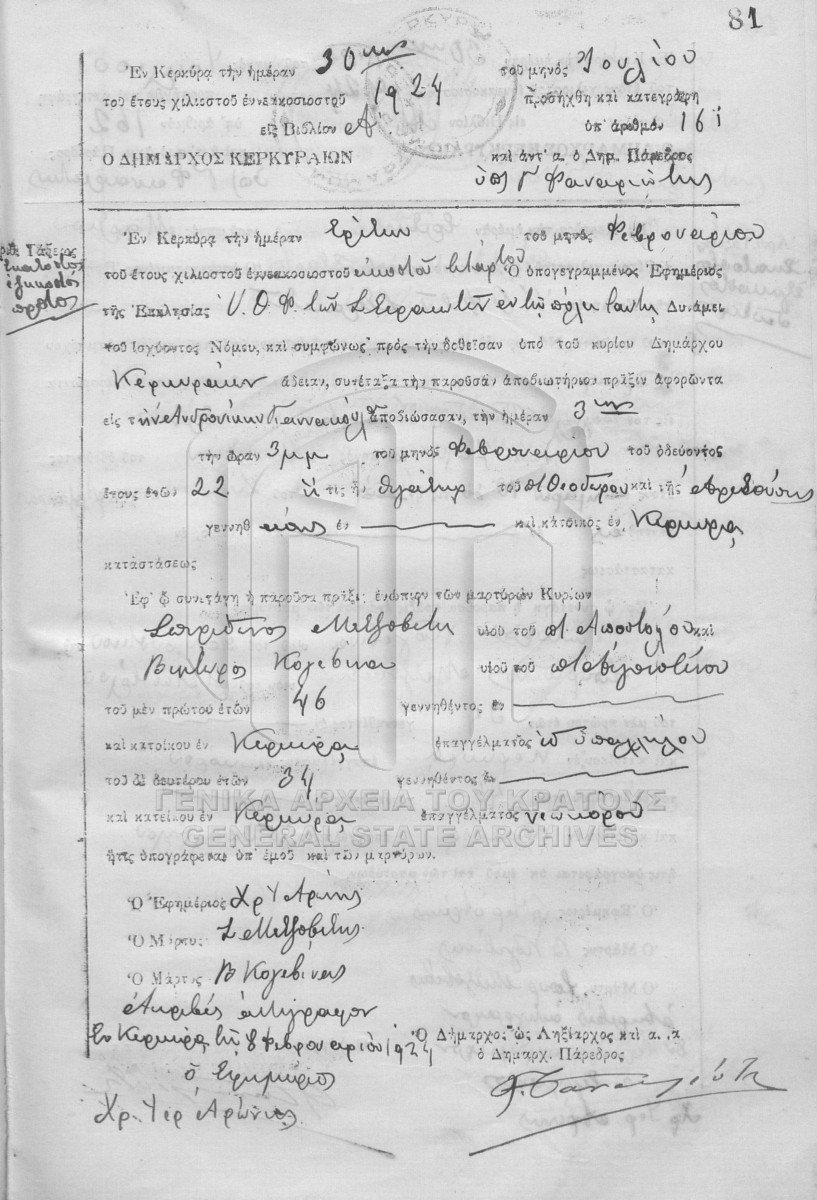 81
Ἐν Κερκύρᾳ τὴν ἡμέραν 30ην τοῦ μηνὸς Ἰουλίου
τοῦ ἔτους χιλιοστοῦ ἐννεακοσιοστοῦ 1924 προσήχθη καὶ κατεγράφη
εἰς Βιβλίον Α. ὑπ' ἀριθμὸν 161
Ο ΔΗΜΑΡΧΟΣ ΚΕΡΚΥΡΑΙΩΝ καὶ ἀντ' α. ὁ Δημ. Πάρεδρος
Φαναριώτης
Ἐν Κερκύρᾳ τὴν ἡμέραν τρίτην τοῦ μηνὸς Φεβρουαρίου
Τάξεως
ἑκατοστὸς
ἑξηκοστὸς
πρῶτος
τοῦ ἔτους χιλιοστοῦ ἐννεακοσιοστοῦ εἰκοστοῦ τετάρτου Ὁ ὑπογεγραμμένος Ἐφημέριος
τῆς Ἐκκλησίας Υ. Θ. Φ. τῶν ἐν τῇ πόλει ταύτῃ Δυνάμει
τοῦ ἰσχύοντος Νόμου, καὶ συμφώνως πρὸς τὴν δοθεῖσαν ὑπὸ τοῦ κυρίου Δημάρχου
Κερκυραίων ἄδειαν, συνέταξα τὴν παροῦσαν ἀποβιωτήριον πρᾶξιν ἀφορῶντα
εἰς τὴν Ἀνδρονίκην ἀποβιώσασαν, τὴν ἡμέραν 3ην
τὴν ὥραν 3 μμ τοῦ μηνὸς Φεβρουαρίου τοῦ ὁδεύοντος
ἔτους ἐτῶν 22 ἥτις ἦν θυγάτηρ τοῦ π Θεοδώρου καὶ τῆς Ἀρετούσης
γεννηθείσης ἐν καὶ κάτοικος ἐν Κερκύρᾳ
καταστάσεως
Ἐφ' ᾧ συνετάγη ἡ παροῦσα πρᾶξις ἐνώπιον τῶν μαρτύρων Κυρίων
Σπυρίδωνος Μεταξοβίτη υἱοῦ τοῦ π. Ἀποστόλου καὶ
Βίκτωρος Κογεβίνα υἱοῦ τοῦ π Αὐγουστίνου
τοῦ μὲν πρώτου ἐτῶν 46 γεννηθέντος ἐν
καὶ κατοίκου ἐν Κερκύρᾳ ἐπαγγέλματος ὑπαλλήλου
τοῦ δὲ δευτέρου ἐτῶν 34 γεννηθέντος ἐν
ΓΕΝΙΚΑ ΑΡΧΕΙΑ ΤΟΥ ΚΡΑΤΟΥΣ
καὶ κατοίκου ἐν Κερκύρᾳ ἐπαγγέλματος νεωκόρου
GENERAL STATE ARCHIVES
ἥτις ὑπογράφεται ὑπ' ἐμοῦ καὶ τῶν μαρτύρων.
Ὁ Ἐφημέριος Χρ Υ Ἀρώνης
Ὁ Μάρτυς Σ Μεταξοβίτης
Ὁ Μάρτυς Β Κογεβίνας
Ἀκριβὲς ἀντίγραφον
Ἐν Κερκύρᾳ τῇ 8 Φεβρουαρίου 1924 Ὁ Δήμαρχος ὡς Ληξίαρχος καὶ α. α
ὁ Δημαρχ. Πάρεδρος
ὁ Ἐφημέριος
Χρ. Ἱερ Ἀρώνης